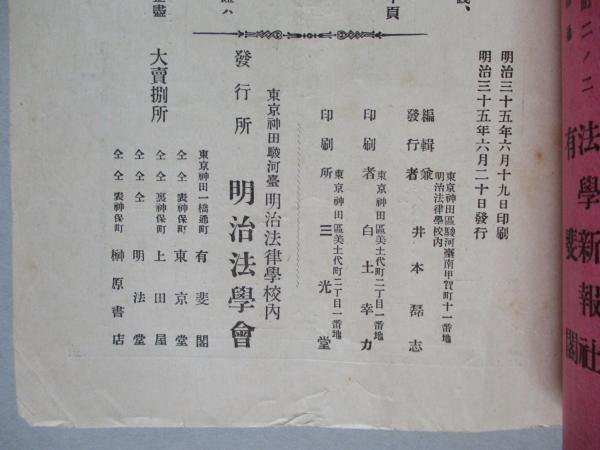 法學新報社
有斐閣
明治三十五年六月十九日印刷
明治三十五年六月二十日發行
東京神田區駿河臺南甲賀町十一番地
明治法律學校內
編輯兼
發行者 井本磊志
東京神田區美土代町二丁目一番地
印刷者 白土幸力
東京神田區美土代町二丁目一番地
印刷所 三光堂
東京神田駿河臺明治法律學校內
發行所 明治法學會
大賣捌所
東京神田一橋通町 有斐閣
仝仝表神保町 東京堂
仝仝裏神保町 上田屋
仝仝仝 明法堂
仝仝表神保町 榊原書店